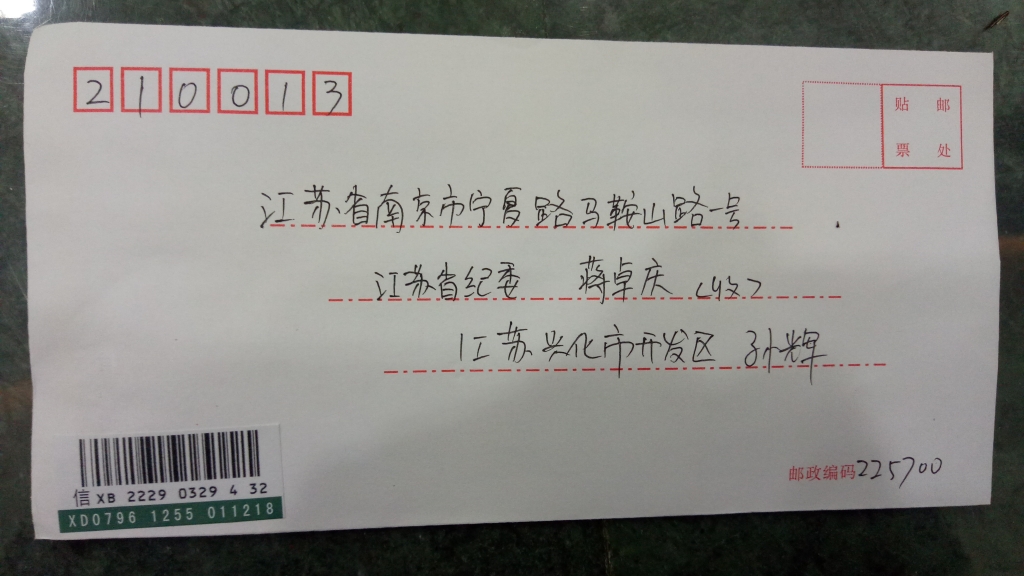 210013
贴 邮
票 处
江苏省南京市宁夏路马鞍山路一号
江苏省纪委 蒋卓庆 (收)
江苏兴化市开发区 孙辉
邮政编码225700
信 XB 2229 0329 4 32
XD0796 1255 011218